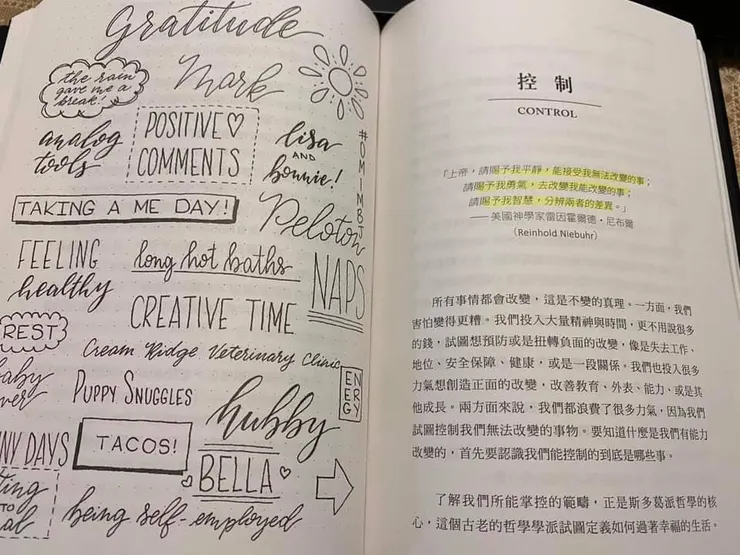 Gratitude
the rain
gave me a
break!
Mark
analog
tools
POSITIVE
COMMENTS
lisa
AND
bonnie!
#OMIMBJ
TAKING A ME DAY!
Peloton
FEELING
healthy
long hot baths
NAPS
CREATIVE TIME
REST
Cream Ridge Veterinary Clinic
PUPPY SNUGGLES
ENERGY
hubby
NY DAYS
TACOS!
BELLA
TO
being self-employed
控制
CONTROL
「上帝,請賜予我平靜,能接受我無法改變的事;
請賜予我勇氣,去改變我能改變的事;
請賜予我智慧,分辨兩者的差異。」
——美國神學家雷因霍爾德・尼布爾
(Reinhold Niebuhr)
所有事情都會改變,這是不變的真理。一方面,我們
害怕變得更糟。我們投入大量精神與時間,更不用說很多
的錢,試圖想預防或是扭轉負面的改變,像是失去工作、
地位、安全保障、健康,或是一段關係。我們也投入很多
力氣想創造正面的改變,改善教育、外表、能力、或是其
他成長。兩方面來說,我們都浪費了很多力氣,因為我們
試圖控制我們無法改變的事物。要知道什麼是我們有能力
改變的,首先要認識我們能控制的到底是哪些事。
了解我們所能掌控的範疇,正是斯多葛派哲學的核
心,這個古老的哲學學派試圖定義如何過著幸福的生活。